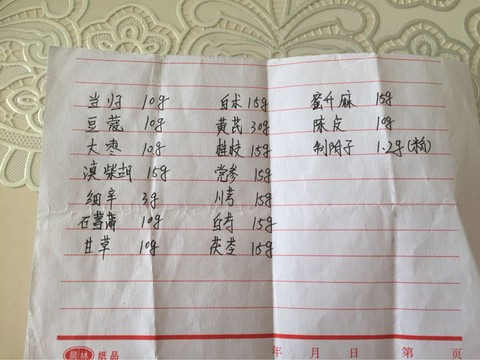 当归 10g 白术 15g 蜜升麻 15g
豆蔻 10g 黄芪 30g 陈皮 10g
大枣 10g 桂枝 15g 制附子 1.2g
滇柴胡 15g 党参 15g
细辛 3g 川芎 15g
石菖蒲 10g 白芍 15g
甘草 10g 茯苓 15g
年 月 日 第 页
纸品